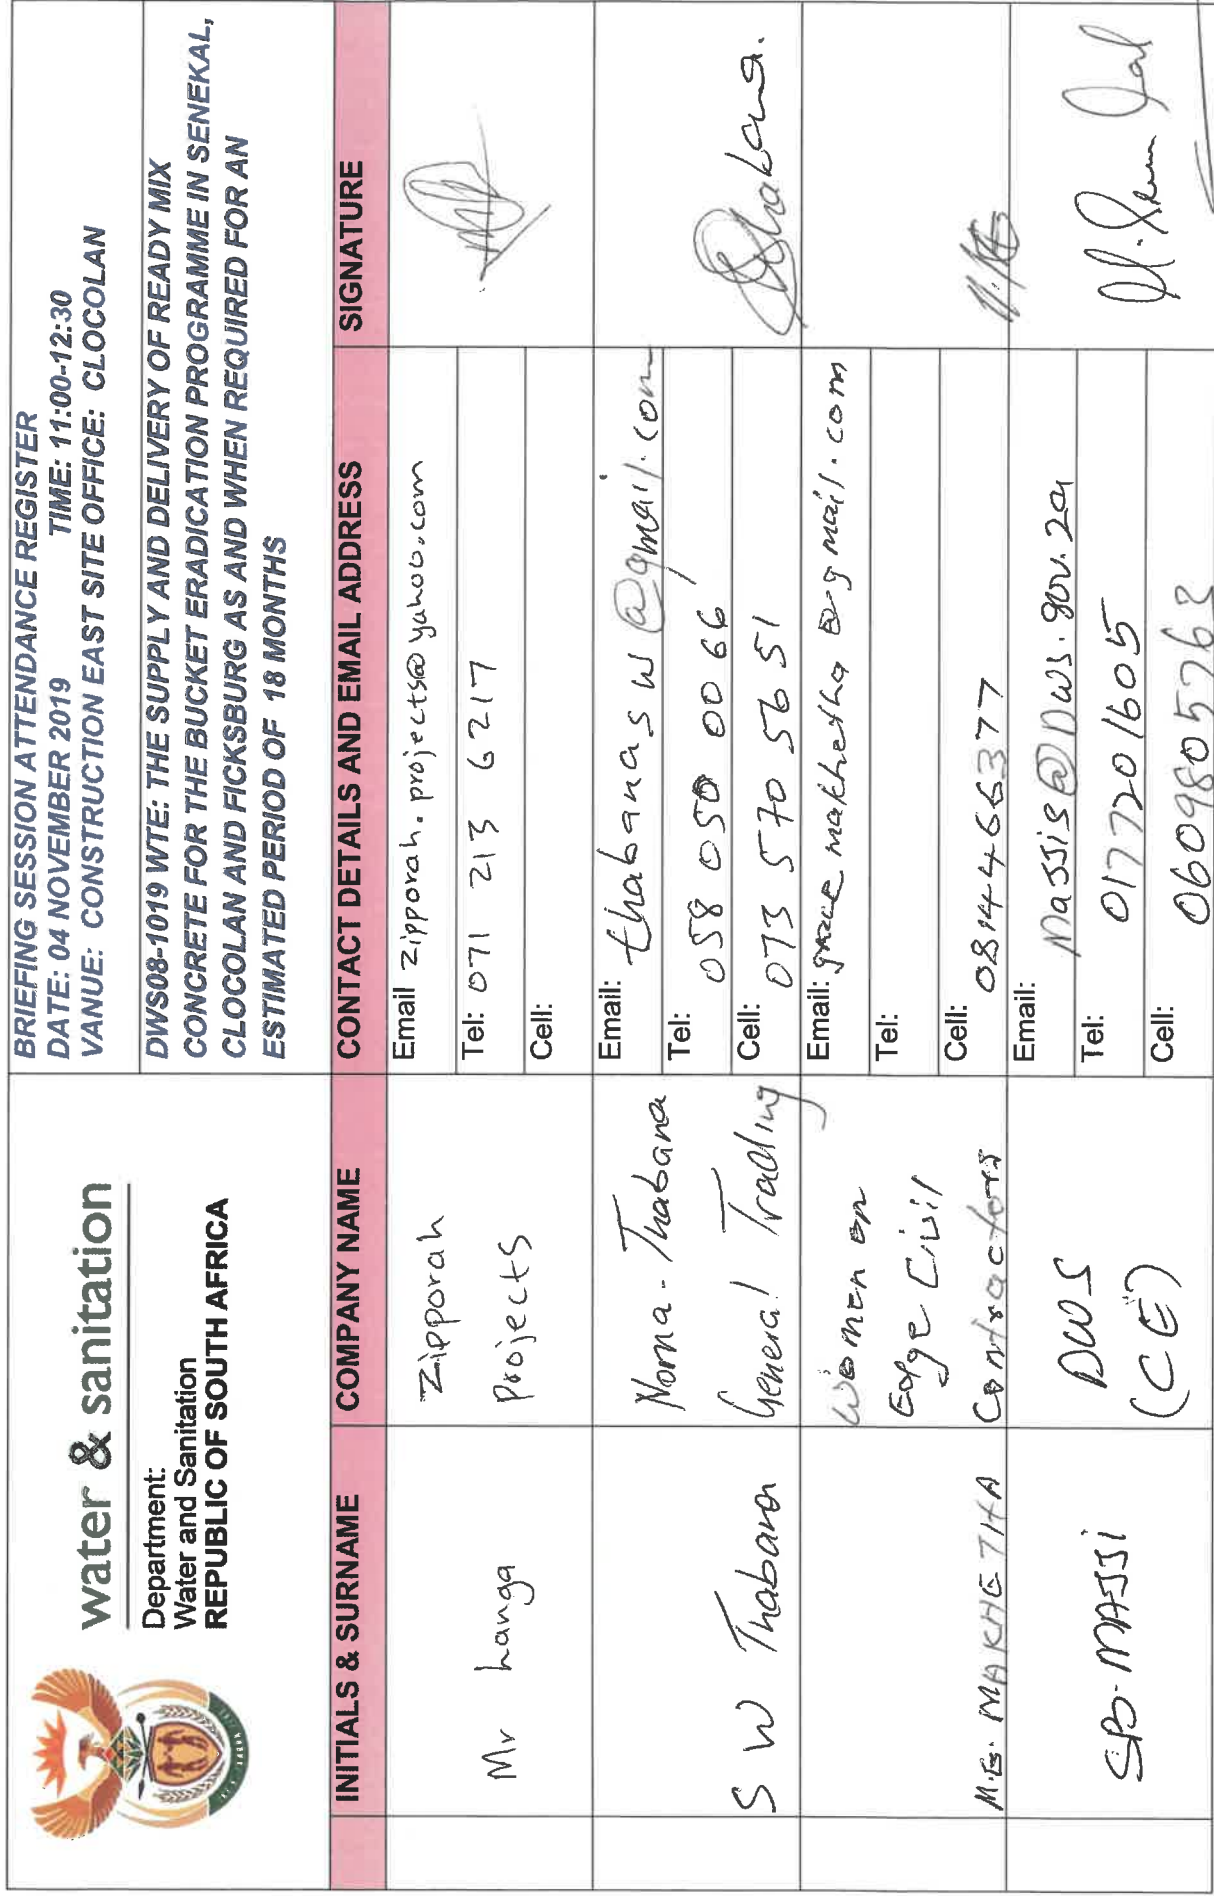 water & sanitation
Department:
Water and Sanitation
REPUBLIC OF SOUTH AFRICA
BRIEFING SESSION ATTENDANCE REGISTER
DATE: 04 NOVEMBER 2019 TIME: 11:00-12:30
VANUE: CONSTRUCTION EAST SITE OFFICE: CLOCOLAN
DWS08-1019 WTE: THE SUPPLY AND DELIVERY OF READY MIX
CONCRETE FOR THE BUCKET ERADICATION PROGRAMME IN SENEKAL,
CLOCOLAN AND FICKSBURG AS AND WHEN REQUIRED FOR AN
ESTIMATED PERIOD OF 18 MONTHS
INITIALS & SURNAME COMPANY NAME CONTACT DETAILS AND EMAIL ADDRESS SIGNATURE
Mr hanga
Zipporah
Projects
Email zipporah.projects@yahoo.com
Tel: 071 213 6217
Cell:
S W Thabana
Noma-Thabana
General Trading
Email: thabanasw@gmail.com
Tel: 058 050 0066
Cell: 073 570 5651
M.G. MAKHETHA
Women on
Edge Civil
Contractors
Email: makhetha@gmail.com
Tel:
Cell: 0814466377
SB. MASSI
DWS
(CE)
Email: Massis@Dws.gov.za
Tel: 0177201605
Cell: 0609805762